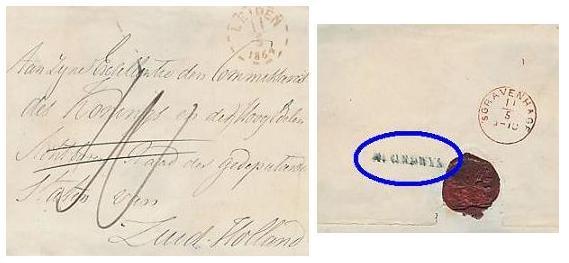 LEIDEN
11
5
1864
Aan Zyne Excellentie den Commissaris
des Konings en de HoogEdelen
Achtbaren Raad der Gedeputeerde
Staten van
Zuid-Holland
10
'SGRAVENHAGE
11
5